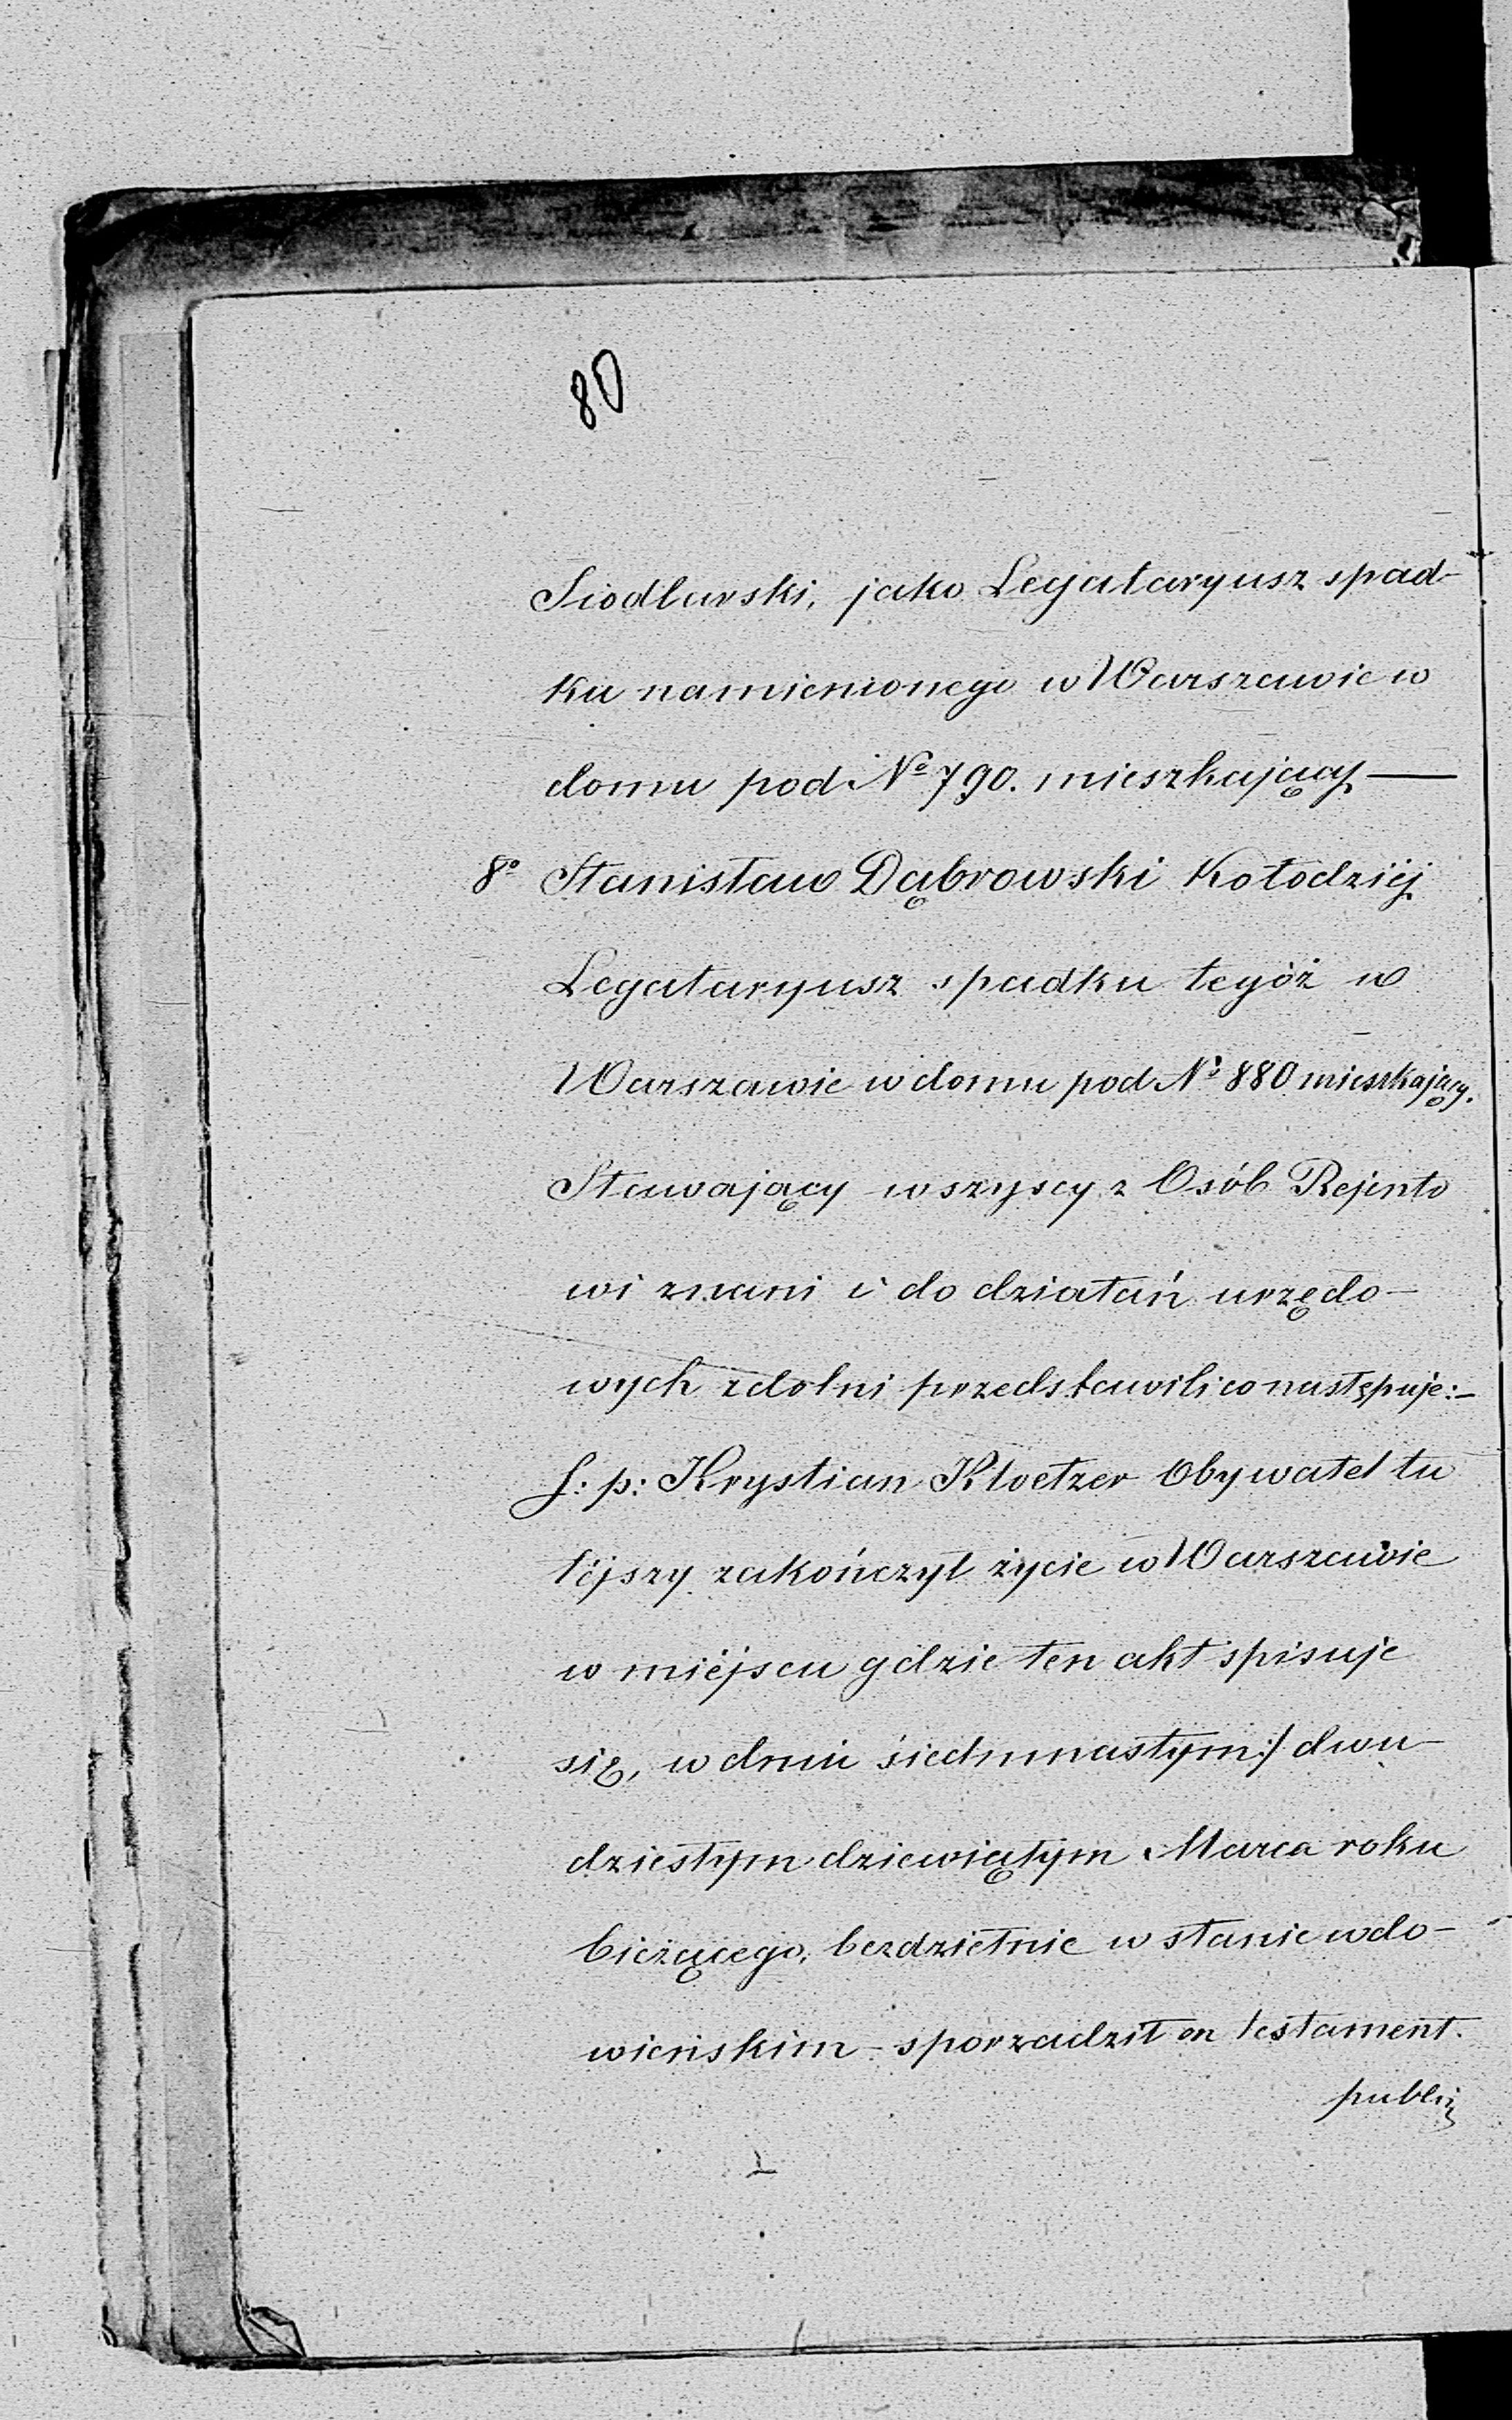 80
Siodlarski, jako Legataryusz spad-
ku namienionego w Warszawie w
domu pod No 790. mieszkający —
8o Stanisław Dąbrowski Kołodziéj
Legataryusz spadku tegóż w
Warszawie w domu pod No 880 mieszkający.
Stawający wszyscy z Osób Rejento
wi znani i do działań urzędo-
wych zdolni przedstawili co następuje:-
ś: p: Krystian Kloetzer Obywatel tu
téjszy zakończył życie w Warszawie
w miéjscu gdzie ten akt spisuje
się, w dniu siedmnastym:/ dwu-
dziestym dziewiątym Marca roku
bieżącego, bezdzietnie w stanie wdo-
wieńskim - sporządził on testament.
publi